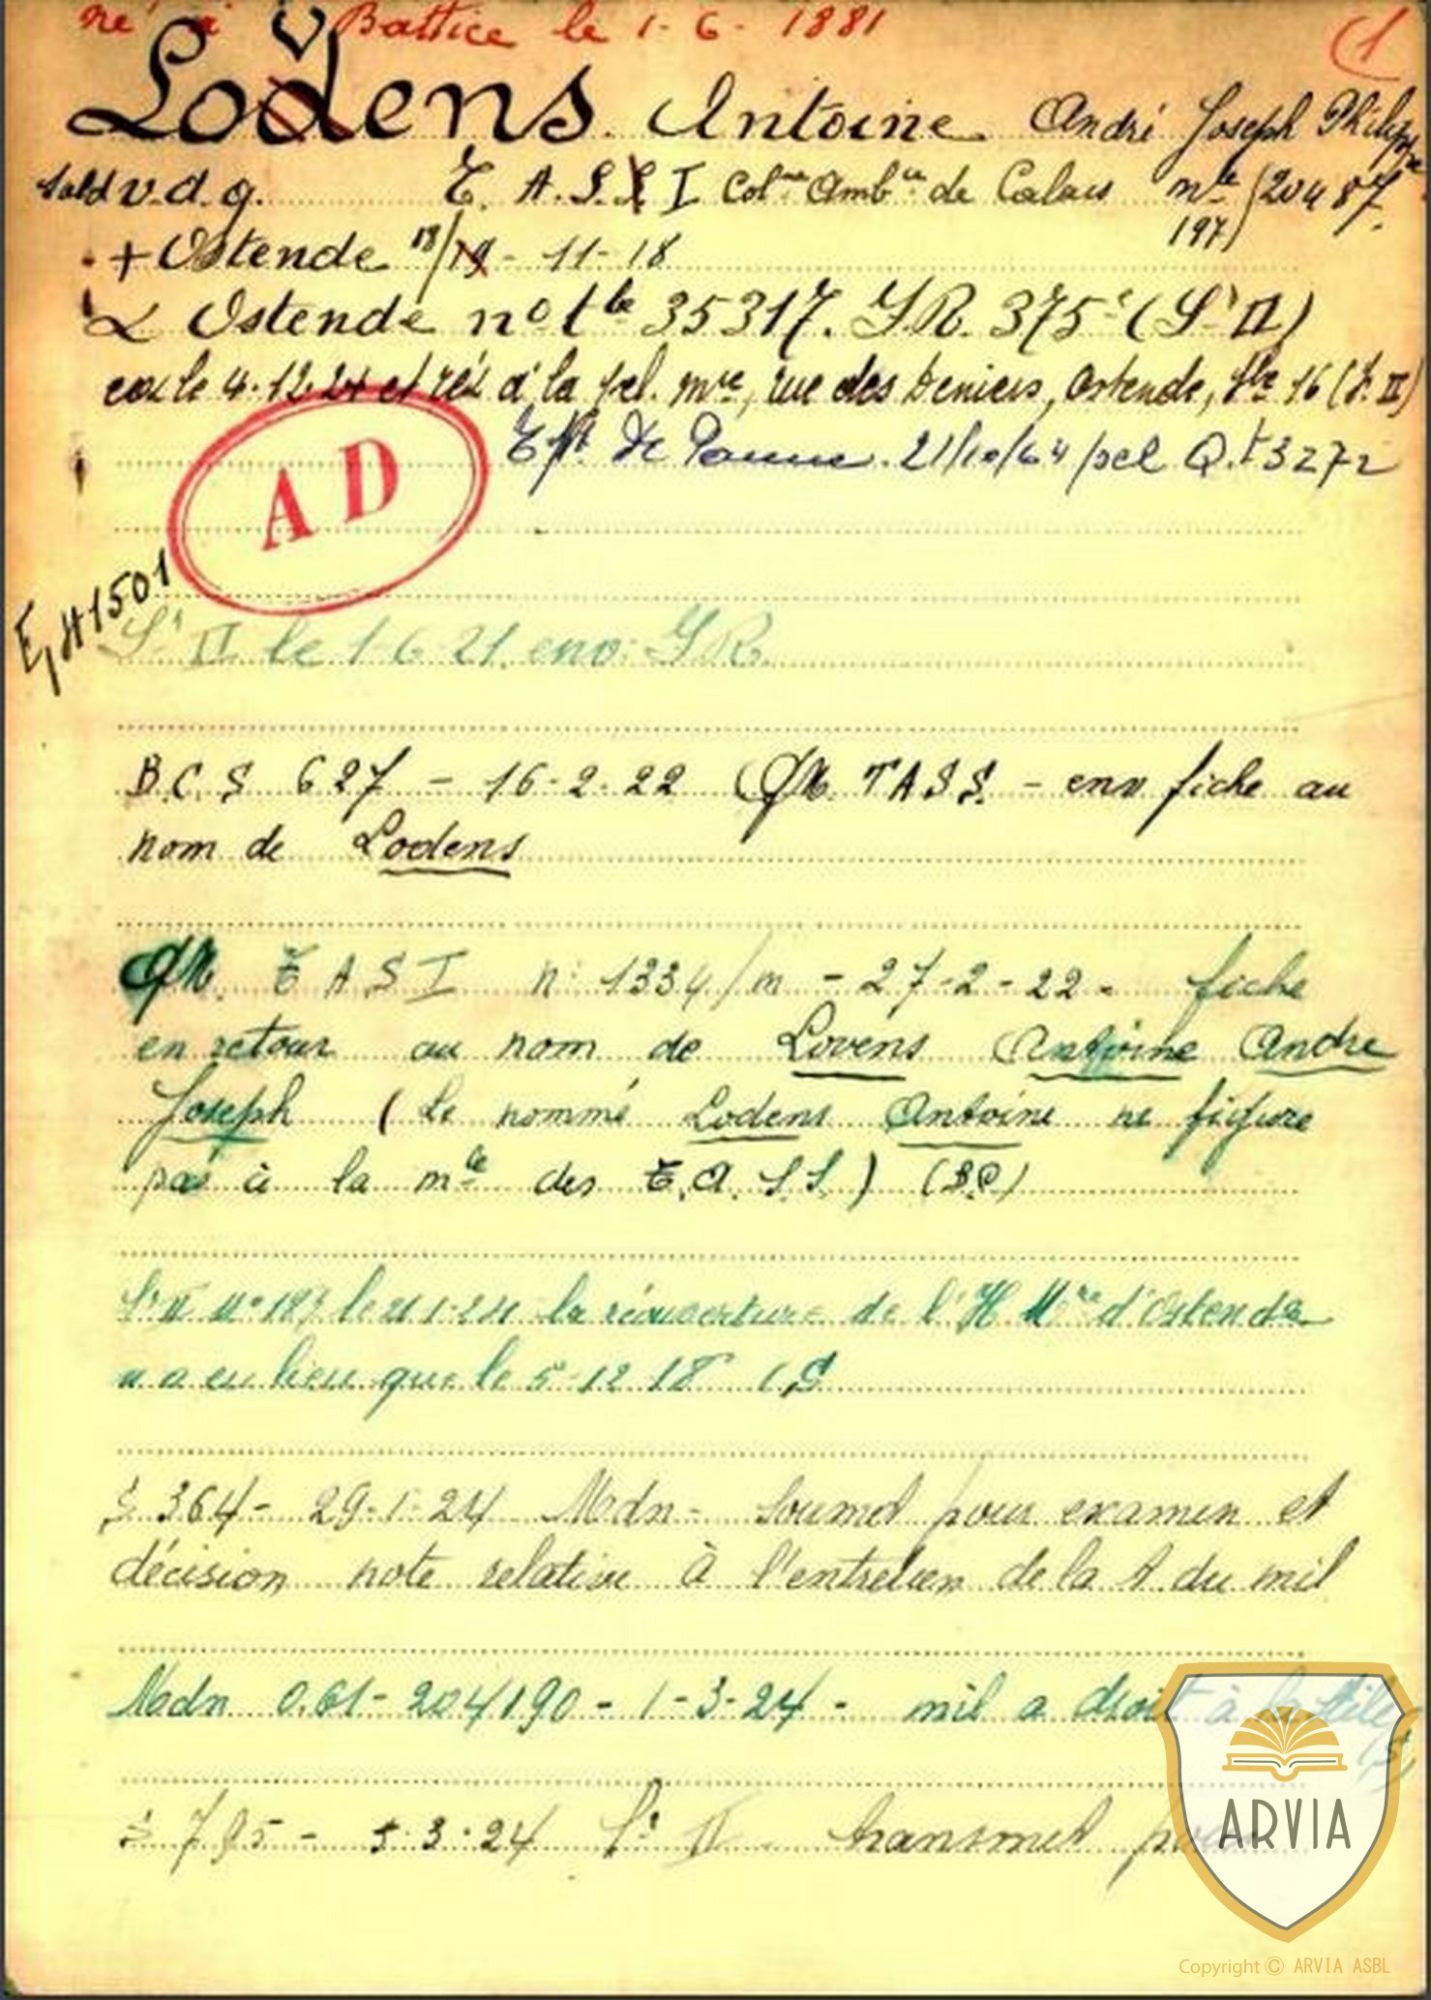 né à Battice le 1-6-1881
(1
v
Lodens Antoine André Joseph Philippe
Sold v.d.g. E. A. S. I Col.ne Amb.ce de Calais mle 20487
197)
+ Ostende 18/19-11-18
Ostende no tbe 35317. G.R. 375 (S.II)
ex. le 4.12.24 et ré à la pel. mre, rue des Deniers, Ostende, tbe 16 (S. II)
De Panne. 21/10/64 /pel Q.t 3272
A D
EH1501
S. II le 1-6-21. env: G.R.
B.C.S 627 - 16-2-22 QM. TASS. - env fiche au
nom de Lodens
QM. E A S I n: 1334/m - 27-2-22 - fiche
en retour au nom de Lovens Antoine Andre
Joseph (Le nommé Lodens Antoine ne figure
pas à la mle des E.A.S.S.)
le 21-1-24 la réouverture de l'H Mre d'Ostende
n a eu lieu que le 5-12-18 (S
S 364 - 29-1-24 Mdn - Soumet pour examen et
décision note relative à l'entretien de la t. du mil
Mdn 0.61 - 204190 - 1-3-24 - mil a droit à la
(S)
S 795 - 5.3.24 S. II transmet pour
ARVIA
Copyright © ARVIA ASBL